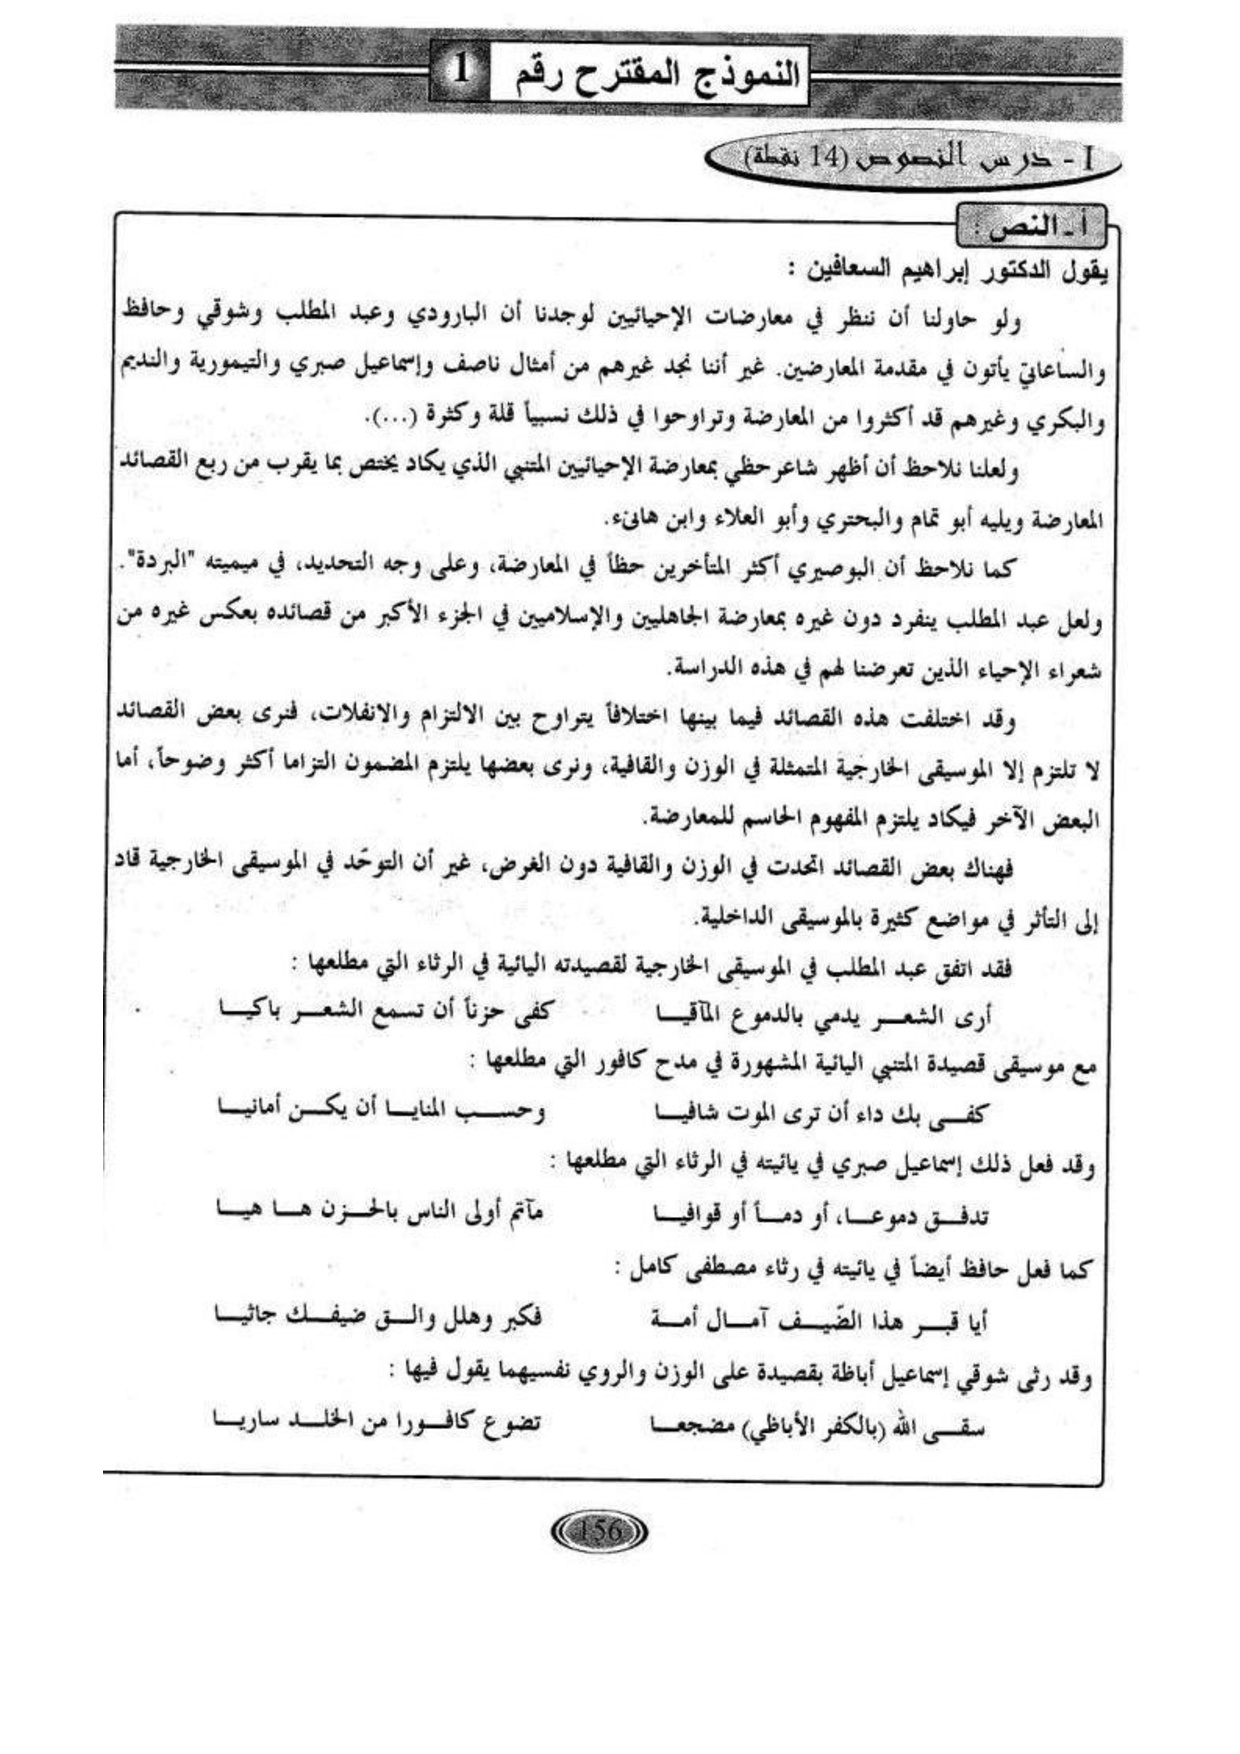 النموذج المقترح رقم 1
I - درس النصوص (14 نقطة)
أ ـ النص :
يقول الدكتور إبراهيم السعافين :
ولو حاولنا أن ننظر في معارضات الإحيائيين لوجدنا أن البارودي وعبد المطلب وشوقي وحافظ
والساعاتي يأتون في مقدمة المعارضين. غير أننا نجد غيرهم من أمثال ناصف وإسماعيل صبري والتيمورية والنديم
والبكري وغيرهم قد أكثروا من المعارضة وتراوحوا في ذلك نسبياً قلة وكثرة (...).
ولعلنا نلاحظ أن أظهر شاعر حظي بمعارضة الإحيائيين المتنبي الذي يكاد يختص بما يقرب من ربع القصائد
المعارضة ويليه أبو تمام والبحتري وأبو العلاء وابن هانىء.
كما نلاحظ أن البوصيري أكثر المتأخرين حظاً في المعارضة، وعلى وجه التحديد، في ميميته "البردة".
ولعل عبد المطلب ينفرد دون غيره بمعارضة الجاهليين والإسلاميين في الجزء الأكبر من قصائده بعكس غيره من
شعراء الإحياء الذين تعرضنا لهم في هذه الدراسة.
وقد اختلفت هذه القصائد فيما بينها اختلافاً يتراوح بين الالتزام والانفلات، فنرى بعض القصائد
لا تلتزم إلا الموسيقى الخارجية المتمثلة في الوزن والقافية، ونرى بعضها يلتزم المضمون التزاما أكثر وضوحاً، أما
البعض الآخر فيكاد يلتزم المفهوم الحاسم للمعارضة.
فهناك بعض القصائد اتحدت في الوزن والقافية دون الغرض، غير أن التوحّد في الموسيقى الخارجية قاد
إلى التأثر في مواضع كثيرة بالموسيقى الداخلية.
فقد اتفق عبد المطلب في الموسيقى الخارجية لقصيدته اليائية في الرثاء التي مطلعها :
أرى الشعـــر يدمي بالدموع المآقيـــا كفى حزناً أن تسمع الشعـــر باكيـــا
مع موسيقى قصيدة المتنبي اليائية المشهورة في مدح كافور التي مطلعها :
كفـــى بك داء أن ترى الموت شافيـــا وحســـب المنايـــا أن يكـــن أمانيـــا
وقد فعل ذلك إسماعيل صبري في يائيته في الرثاء التي مطلعها :
تدفـــق دموعـــا، أو دمـــاً أو قوافيـــا مآتم أولى الناس بالحـــزن هـــا هيـــا
كما فعل حافظ أيضاً في يائيته في رثاء مصطفى كامل :
أيا قبـــر هذا الضّيـــف آمـــال أمـــة فكبر وهلل والـــق ضيفـــك جاثيـــا
وقد رثى شوقي إسماعيل أباظة بقصيدة على الوزن والروي نفسيهما يقول فيها :
سقـــى الله (بالكفر الأباظي) مضجعـــا تضوع كافـــورا من الخلـــد ساريـــا
156